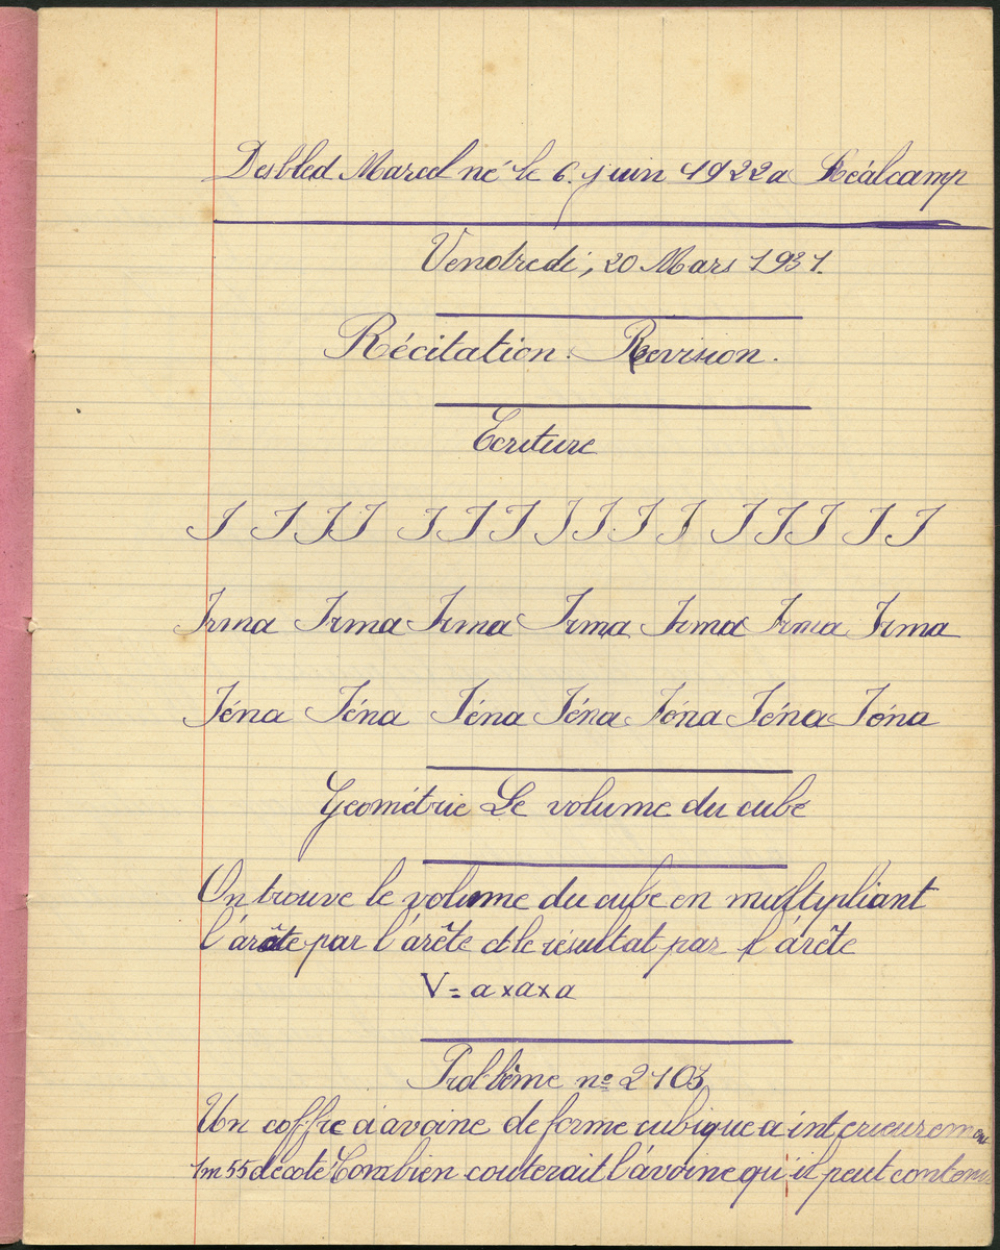 Desbled Marcel né le 6 juin 1922 a Réalcamp
Vendredi, 20 Mars 1931.
Récitation. Revision.
Ecriture
I I I I I I I I I I I I I I I I
Irma Irma Irma Irma Irma Irma Irma
Iéna Iéna Iéna Iéna Iéna Iéna Iéna
Géométrie Le volume du cube
On trouve le volume du cube en multipliant
l'arête par l'arête et le résultat par l'arête
V = a x a x a
Problème nº 2103
Un coffre à avoine de forme cubique a interieuremen
1m55 de coté Combien couterait l'avoine qu'il peut conteni